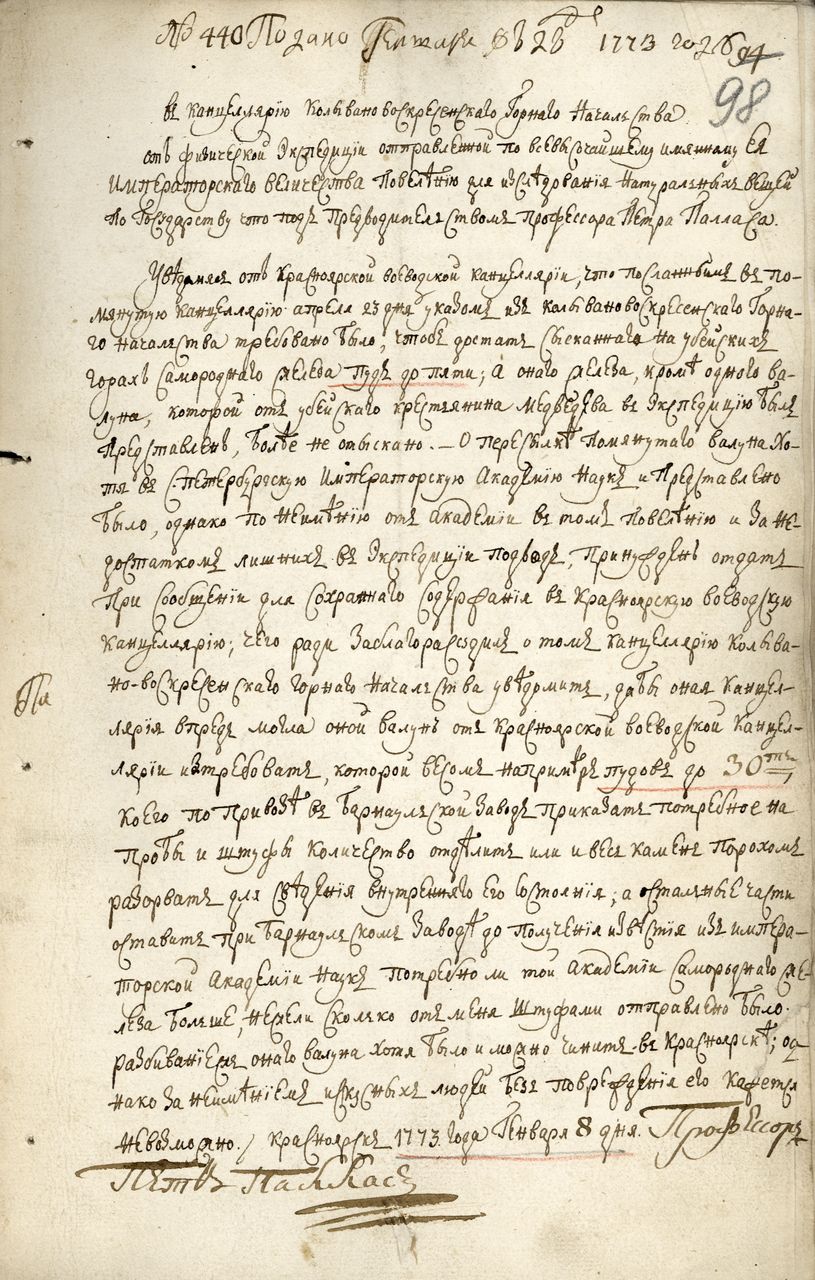 № 440 Подано Генваря 28 1773 году
94
98
въ канцеллярїю Колывановоскресенскаго Горнаго Началства
отъ физической Экспедицїи отправленной по всевысочайшему имянному ЕЯ
ИМПЕРАТОРСКАГО ВЕЛИЧЕСТВА Повелѣнїю для изслѣдованїя Натуральныхъ вещей
по Государству что подъ предводителством Профессора Петра Палласа.
Увѣдомяся отъ Красноярской воеводской канцеллярїи, что посланнымъ въ по-
мянутую канцеллярїю апреля 23 дня указомъ изъ колывановоскресенскаго Горна-
го началства требовано было, чтобъ достать сысканнаго на убейскихъ
горахъ самороднаго железа пудъ до пяти; а онаго железа, кромѣ одного ва-
луна, которой отъ убейскаго крестьянина медведева въ Экспедицїю былъ
представленъ, болѣе не отыскано. — О пересылкѣ помянутаго валуна хо-
тя въ С:Петербургскую Императорскую Академїю Наукъ и представлено
было, однако по неимѣнїю отъ Академїи въ томъ повелѣнїю и за не-
достаткомъ лишнихъ въ Экспедицїи подводъ, принужденъ отдать
при сообщенїи для сохраннаго содержанїя въ Красноярскую воеводскую
канцеллярїю; чего ради заблагоразсудилъ о томъ канцеллярїю Колыва-
но-воскресенскаго горнаго началства увѣдомить, дабы оная канцел-
лярїя впредь могла оной валунъ отъ Красноярской воеводской канцел-
лярїи изтребовать, которой весомъ напримѣръ пудовъ до 30ти,
коего по привозѣ въ Барнаулской заводъ приказать потребное на
пробы и штуфы количество отдѣлить или и весь камень порохомъ
разорвать для свѣденїя внутренняго его состоянїя; а остальные части
оставить при Барнаулскомъ заводѣ до полученїя извѣстїя изъ импера-
торской Академїи Наукъ потребно ли той Академїи самороднаго же-
леза больше, нежели сколько отъ меня штуфами отправлено было.
разбиванїемъ онаго валуна хотя было и можно чинить въ Красноярскѣ; од-
нако за неимѣнїемъ искусныхъ людей безъ поврежденїя его кажется
невозможно. / Красноярскъ 1773 года Генваря 8 дня. Профессоръ
Петръ Палласъ